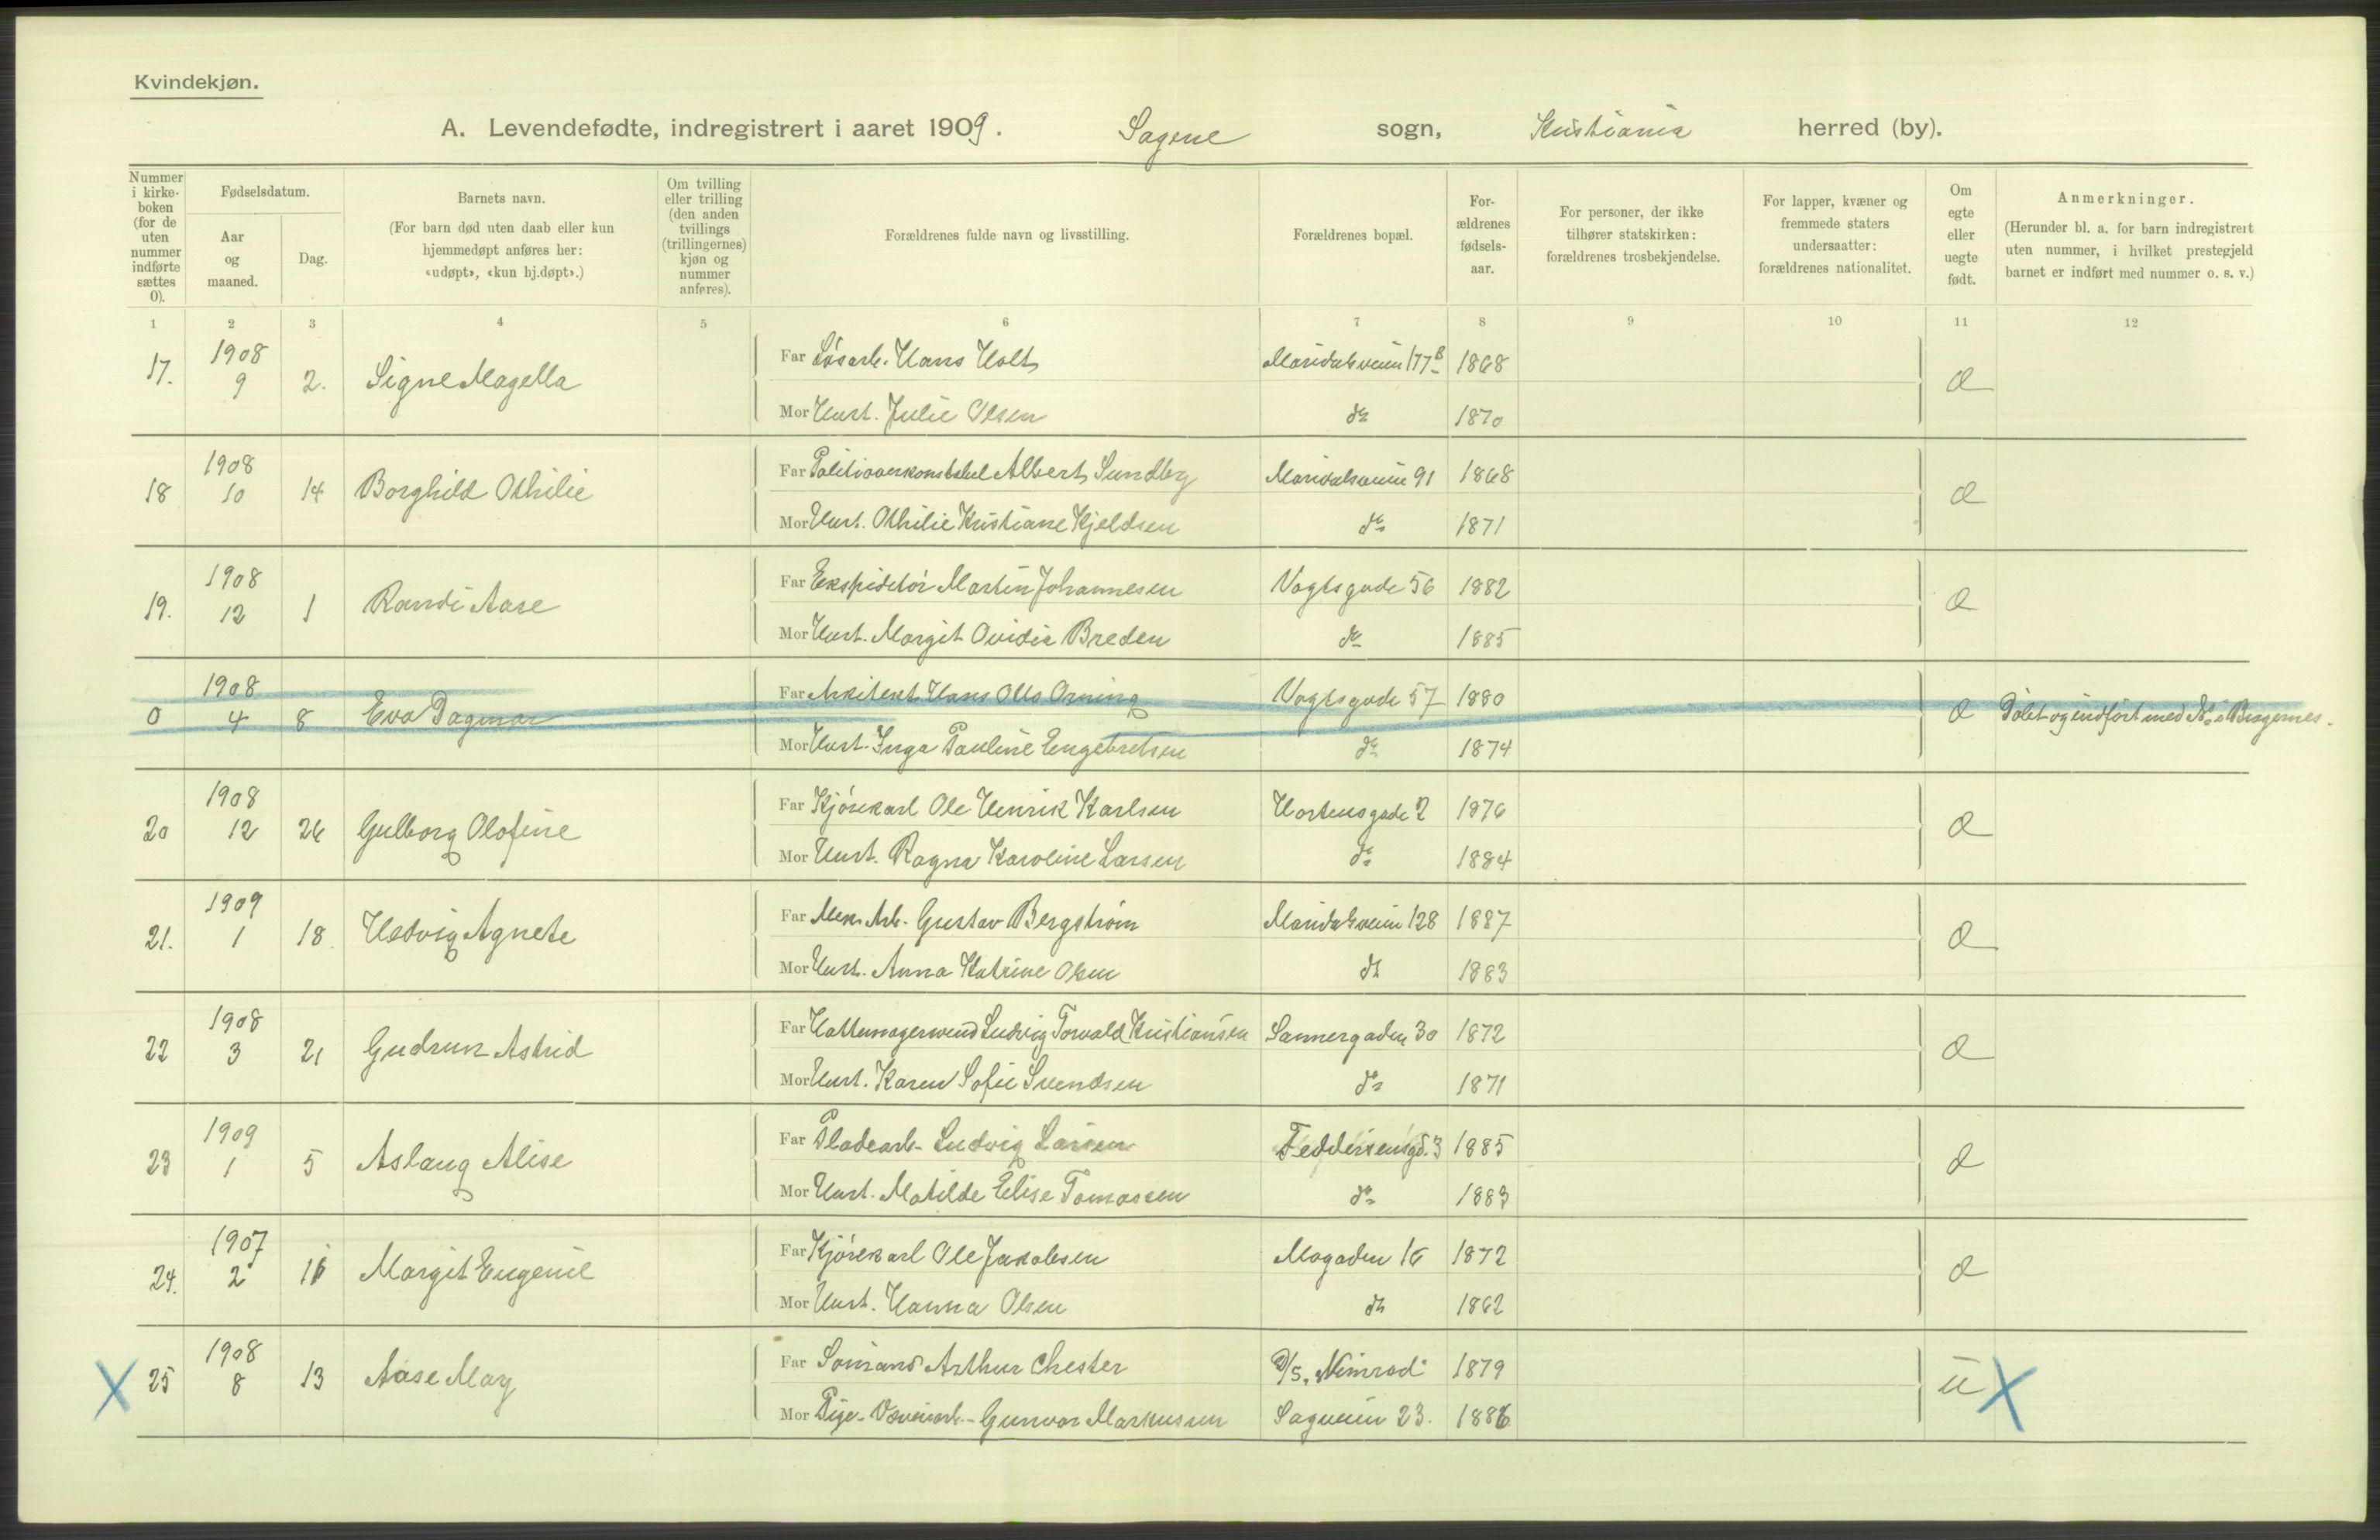 Kvindekjøn.
A. Levendefødte, indregistrert i aaret 1909. Sagene sogn, Kristiania herred (by).
Nummer i kirkeboken (for de uten nummer indførte sættes 0).
Fødselsdatum.
Aar og maaned.
Dag.
Barnets navn.
(For barn død uten daab eller kun hjemmedøpt anføres her: «udøpt», «kun hj.døpt».)
Om tvilling eller trilling (den anden tvillings (trillingernes) kjøn og nummer anføres).
Forældrenes fulde navn og livsstilling.
Forældrenes bopæl.
Forældrenes fødselsaar.
For personer, der ikke tilhører statskirken: forældrenes trosbekjendelse.
For lapper, kvæner og fremmede staters undersaatter: forældrenes nationalitet.
Om egte eller uegte født.
Anmerkninger.
(Herunder bl. a. for barn indregistrert uten nummer, i hvilket prestegjeld barnet er indført med nummer o. s. v.)
1 2 3 4 5 6 7 8 9 10 11 12
17. 1908 9 2. Signe Magella
Far Løsarb. Hans Holt Maridalsveien 177B 1868
Mor Hust. Julie Olsen do 1870
18 1908 10 14 Borghild Othilie
Far Politioverkonstabel Albert Sundbyg Maridalsveien 91 1868
Mor Hust. Othilie Kristiane Kjeldsen do 1871
19. 1908 12 1 Randi Aase
Far Ekspeditør Martin Johannesen Vogtsgade 56 1882
Mor Hust. Margit Ovidia Breden do 1885
0 1908 4 8 Eva Dagmar
Far Arkitekt Hans Otto Orning Vogtsgade 57 1880
Døbt og indført med No i Bragernes.
Mor Hust. Inga Pauline Engebretsen do 1874
20 1908 12 26 Gulborg Olofine
Far Kjørekarl Ole Henrik Karlsen Hortensgade 2 1876
Mor Hust. Ragna Karoline Larsen do 1884
21. 1909 1 18 Hedvig Agnete
Far Mek. Arb. Gustav Bergstrøm Maridalsveien 128 1887
Mor Hust. Anna Katrine Olsen do 1883
22 1908 3 21 Gudrun Astrid
Far Hattemagersvend Ludvig Torvald Kristiansen Sannergaden 30 1872
Mor Hust. Karen Sofie Svendsen do 1871
23 1909 1 5 Aslaug Alise
Far Pladearb. Ludvig Larsen Feddersensgd. 3 1885
Mor Hust. Matilde Elise Tomassen do 1883
24. 1907 2 Margit Eugenie
Far Kjørekarl Ole Jakobsen Mogaden 16 1872
Mor Hust. Hanna Olsen do 1862
X 25 1908 8 13 Aase May
Far Sømand Arthur Chester D/S. "Nimrod" 1879 u X
Mor Pige - Væveriarb. - Gunvor Markussen Sagveien 23. 1886